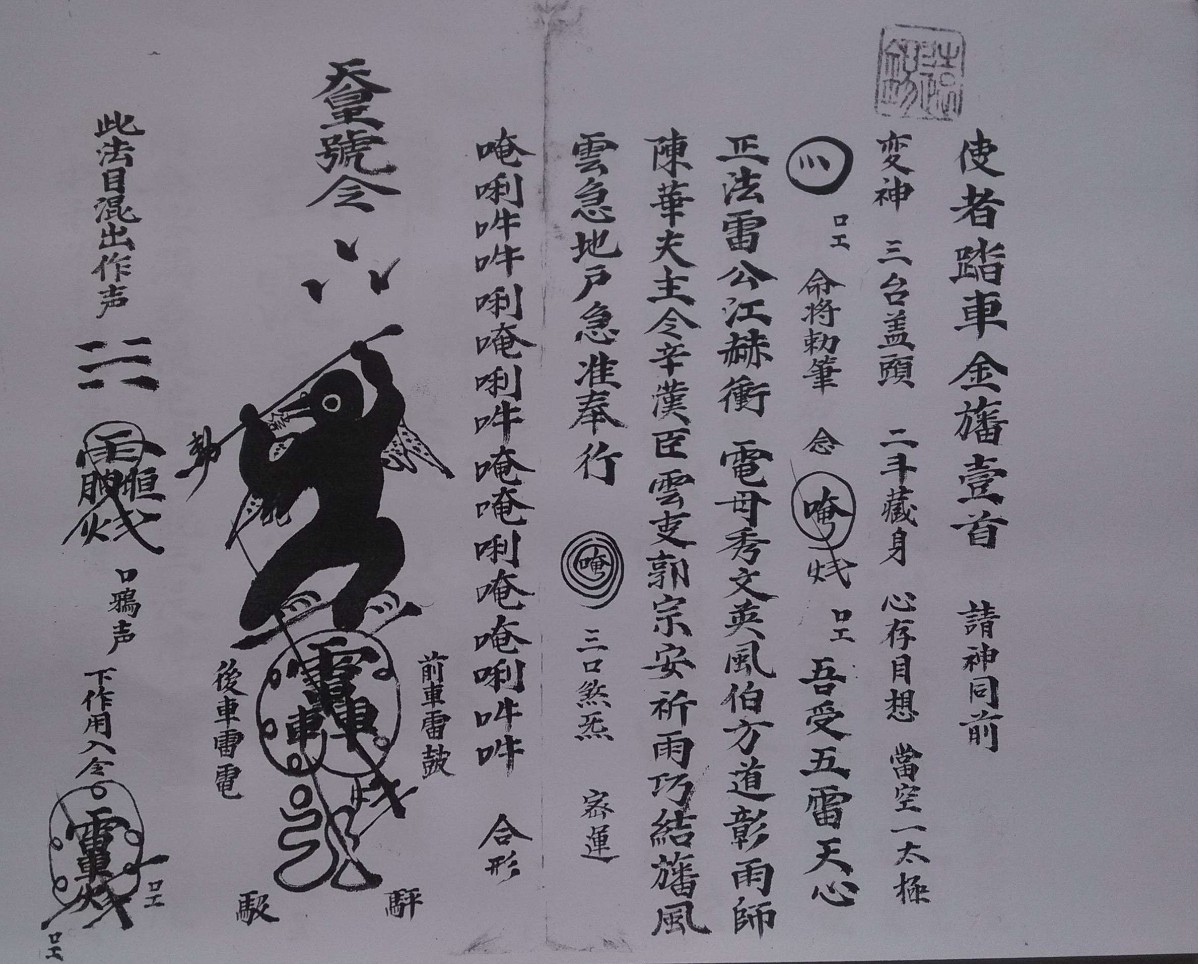 使者踏車金旛壹首 請神同前
変神 三台蓋頭 二斗藏身 心存目想 當空一太極
命將勅筆 念 唵 吾受五雷天心
正法雷公江赫衝 電母秀文英風伯方道彰雨師
陳華夫主令辛漢臣雲吏郭宗安祈雨巧結旛風
雲急地戶急准奉行 唵 三口煞炁 宻運
唵唎吽吽唎唵唎吽唵唵唎唵唵唎吽吽 合形
天皇號令
勅
前車雷鼓
後車雷電
雷車車
此法目混出作声
口鴉声
下作用入念